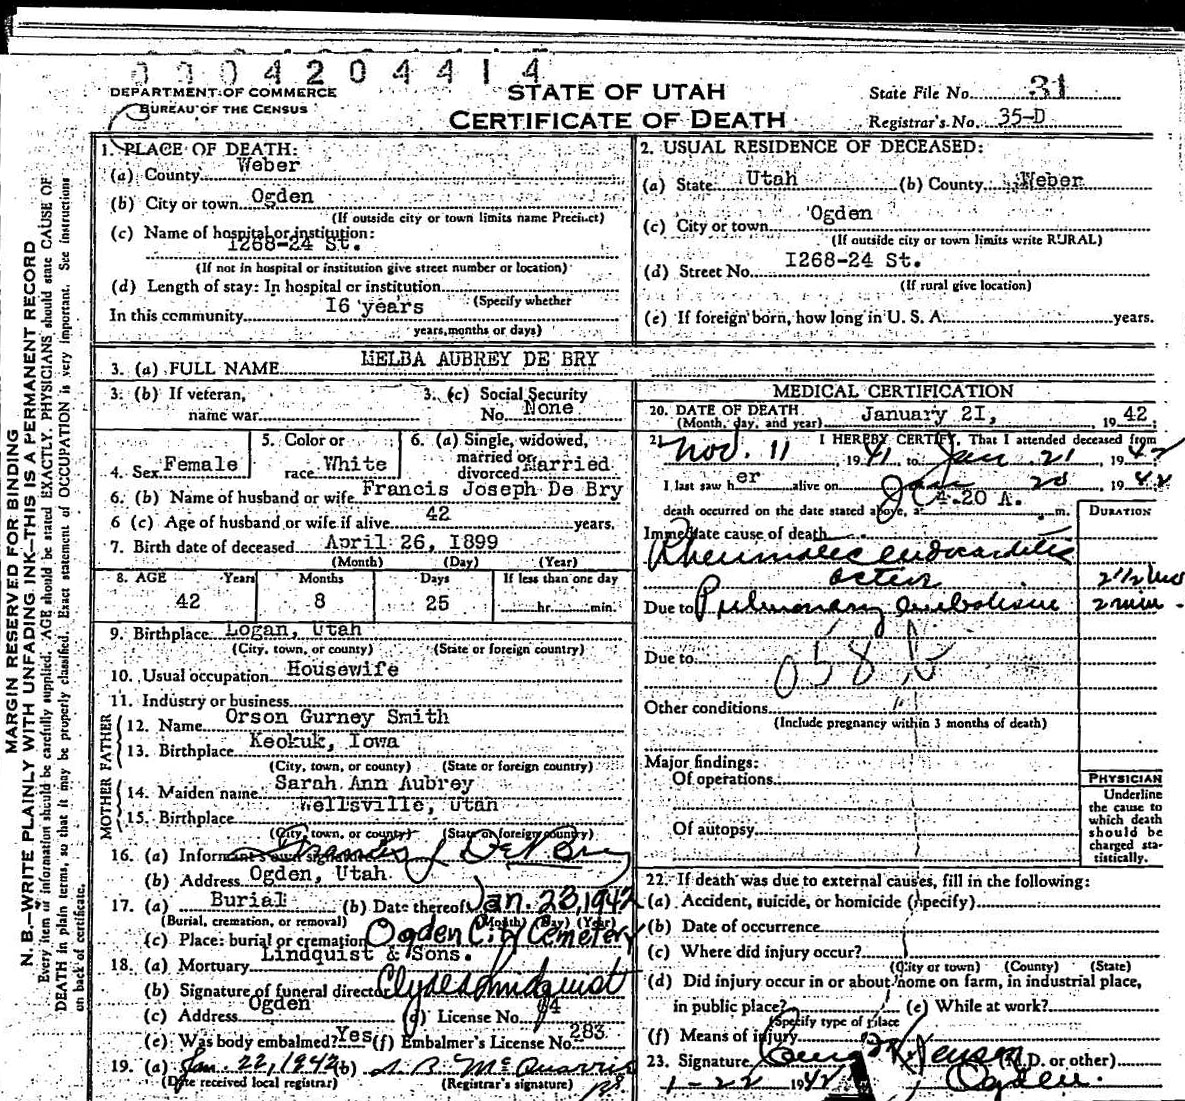 0004204414
DEPARTMENT OF COMMERCE
BUREAU OF THE CENSUS
STATE OF UTAH
CERTIFICATE OF DEATH
State File No. 31
Registrar's No. 35-D
MARGIN RESERVED FOR BINDING
N. B.—WRITE PLAINLY WITH UNFADING INK—THIS IS A PERMANENT RECORD
Every item of information should be carefully supplied. AGE should be stated EXACTLY. PHYSICIANS should state CAUSE OF
DEATH in plain terms, so that it may be properly classified. Exact statement of OCCUPATION is very important. See instructions
on back of certificate.
1. PLACE OF DEATH:
(a) County Weber
(b) City or town Ogden
(If outside city or town limits name Precinct)
(c) Name of hospital or institution:
1268-24 St.
(If not in hospital or institution give street number or location)
(d) Length of stay: In hospital or institution
(Specify whether
In this community 16 years
years, months or days)
2. USUAL RESIDENCE OF DECEASED:
(a) State Utah (b) County Weber
(c) City or town Ogden
(If outside city or town limits write RURAL)
(d) Street No. I268-24 St.
(If rural give location)
(e) If foreign born, how long in U. S. A. years.
3. (a) FULL NAME MELBA AUBREY DE BRY
3. (b) If veteran,
name war
3. (c) Social Security
No. None
4. Sex Female
5. Color or
race White
6. (a) Single, widowed,
married or
divorced Married
6. (b) Name of husband or wife Francis Joseph De Bry
6 (c) Age of husband or wife if alive 42 years.
7. Birth date of deceased April 26, I899
(Month) (Day) (Year)
8. AGE Years Months Days If less than one day
42 8 25 hr. min.
9. Birthplace Logan, Utah
(City, town, or county) (State or foreign country)
10. Usual occupation Housewife
11. Industry or business
FATHER
12. Name Orson Gurney Smith
13. Birthplace Keokuk, Iowa
(City, town, or county) (State or foreign country)
MOTHER
14. Maiden name Sarah Ann Aubrey
15. Birthplace Wellsville, Utah
(City, town, or county) (State or foreign country)
16. (a) Informant's own signature Francis J De Bry
(b) Address Ogden, Utah
17. (a) Burial (b) Date thereof Jan. 23, 1942
(Burial, cremation, or removal) (Month) (Day) (Year)
(c) Place: burial or cremation Ogden City Cemetery
18. (a) Mortuary Lindquist & Sons.
(b) Signature of funeral director Clyde Lindquist
(c) Address Ogden (d) License No. 84
(e) Was body embalmed? Yes (f) Embalmer's License No. 283
19. (a) Jan. 22, 1942 (b) McQuarrie
(Date received local registrar) (Registrar's signature)
MEDICAL CERTIFICATION
20. DATE OF DEATH January 2I, 1942.
(Month, day, and year)
21. I HEREBY CERTIFY, That I attended deceased from
Nov. 11, 1941 to Jan. 21, 1942
I last saw her alive on Jan 20, 1942
death occurred on the date stated above, at 4.20 A. m.
DURATION
Immediate cause of death
Rheumatic endocarditis
active 2½
Due to Pulmonary embolism 2 min.
058
Due to
Other conditions
(Include pregnancy within 3 months of death)
Major findings:
Of operations
Of autopsy
PHYSICIAN
Underline
the cause to
which death
should be
charged sta-
tistically.
22. If death was due to external causes, fill in the following:
(a) Accident, suicide, or homicide (specify)
(b) Date of occurrence
(c) Where did injury occur?
(City or town) (County) (State)
(d) Did injury occur in or about home on farm, in industrial place,
in public place? (e) While at work?
(Specify type of place
(f) Means of injury
23. Signature Jenson (M.D. or other)
1-22 1942 Ogden.